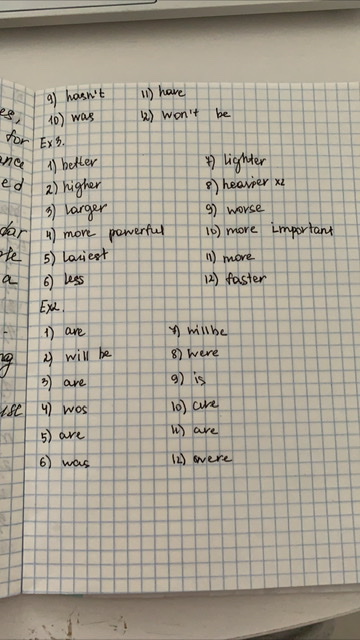 9) hasn't 11) have
10) was 12) won't be
Ex3.
1) better 7) lighter
2) higher 8) heavier x2
3) larger 9) worse
4) more powerful 10) more important
5) laziest 11) more
6) less 12) faster
Ex2.
1) are 7) will be
2) will be 8) were
3) are 9) is
4) was 10) are
5) are 11) are
6) was 12) were
es,
for
ance
ed
dar
a
ng
use